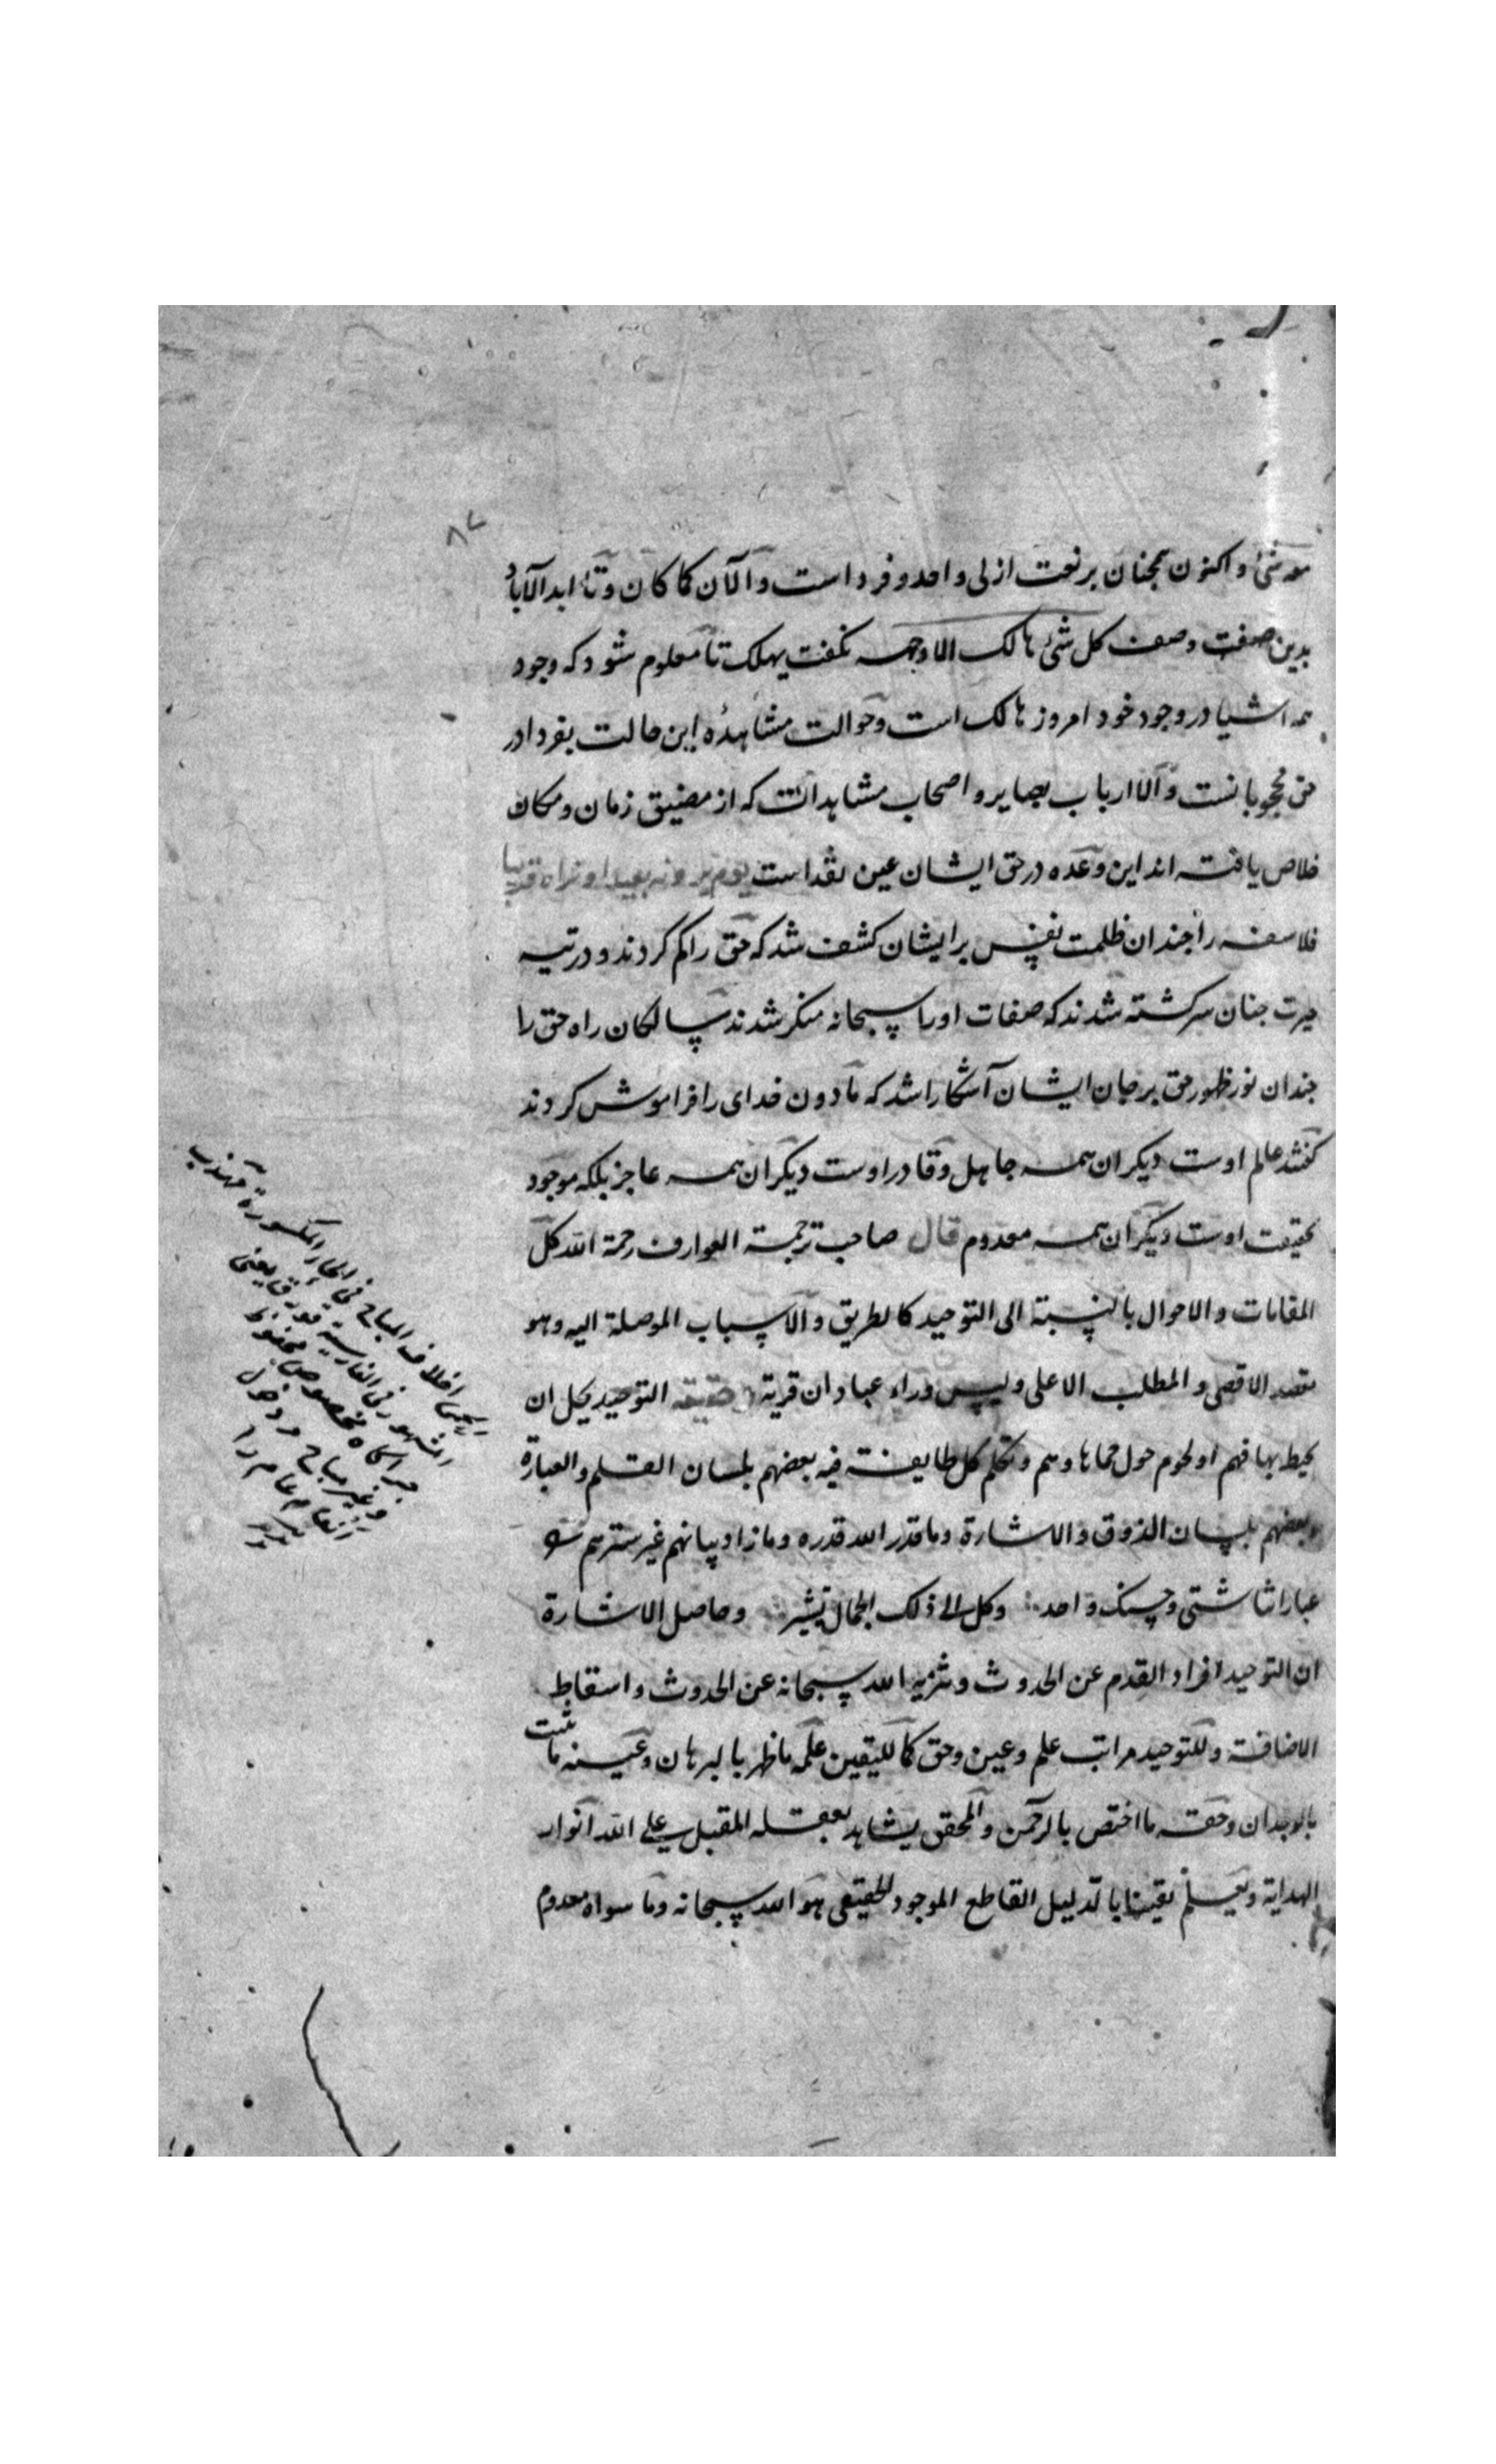 ۸۷
معه شئ و اکنون همچنان بر نعت ازلی واحد و فرد است و الآن کما کان و تا ابد الآباد
بدین صفت وصف کل شئ هالک الا وجهه نکفت یهلک تا معلوم شود که وجود
همه اشیا در وجود خود امروز هالک است و حوالت مشاهدهٔ این حالت بفردا در
حق محجوبانست و الا ارباب بصایر و اصحاب مشاهدات که از مضیق زمان و مکان
خلاص یافته اند این وعده در حق ایشان عین نقد است یوم یرونه بعیدا و نراه قریبا
فلاسفه را جندان ظلمت نفس بر ایشان کشف شد که حق را کم کردند و در تیه
حیرت جنان سرکشته شدند که صفات او را سبحانه منکر شدند سالکان راه حق را
جندان نور ظهور حق بر جان ایشان آشکارا شد که مادون خدای را فراموش کردند
کفتند عالم اوست دیکران همه جاهل و قادر اوست دیکران همه عاجز بلکه موجود
بحقیقت اوست دیکران همه معدوم قال صاحب ترجمة العوارف رحمة الله کل
المقامات و الاحوال بالنسبة الی التوحید کالطریق و الاسباب الموصلة الیه وهو
مقصد الاقصی و المطلب الاعلی و لیس وراء عبادان قریة حقیقة التوحید یجل ان
یحیط بها فهم او یحوم حول حماها وهم و تکلم کل طایفة فیه بعضهم بلسان العلم و العبارة
و بعضهم بلسان الذوق و الاشارة وما قدر الله قدره وما زاد بیانهم غیر سترهم
عباراتنا شتی و حسنک واحد و کل الی ذلک الجمال یشیر و حاصل الاشارة
ان التوحید افراد القدم عن الحدوث و تنزیه الله سبحانه عن الحدوث و اسقاط
الاضافة و للتوحید مراتب علم و عین و حق کما للیقین علمه ما ظهر بالبرهان و عینه ما ثبت
بالوجدان و حقه ما اختص بالرحمن و المحقق یشاهد بعقله المقبل علی الله انوار
الهدایة و یعلم یقینا بالدلیل القاطع الموجود الحقیقی هو الله سبحانه وما سواه معدوم
الحمی خلاف المباح فی الحاء المکسورة مهذب
المشهور فی الفارسیة قورق یعنی
جراکاه مخصوص محفوظ
و غیر مباح دخول
انعام عام را